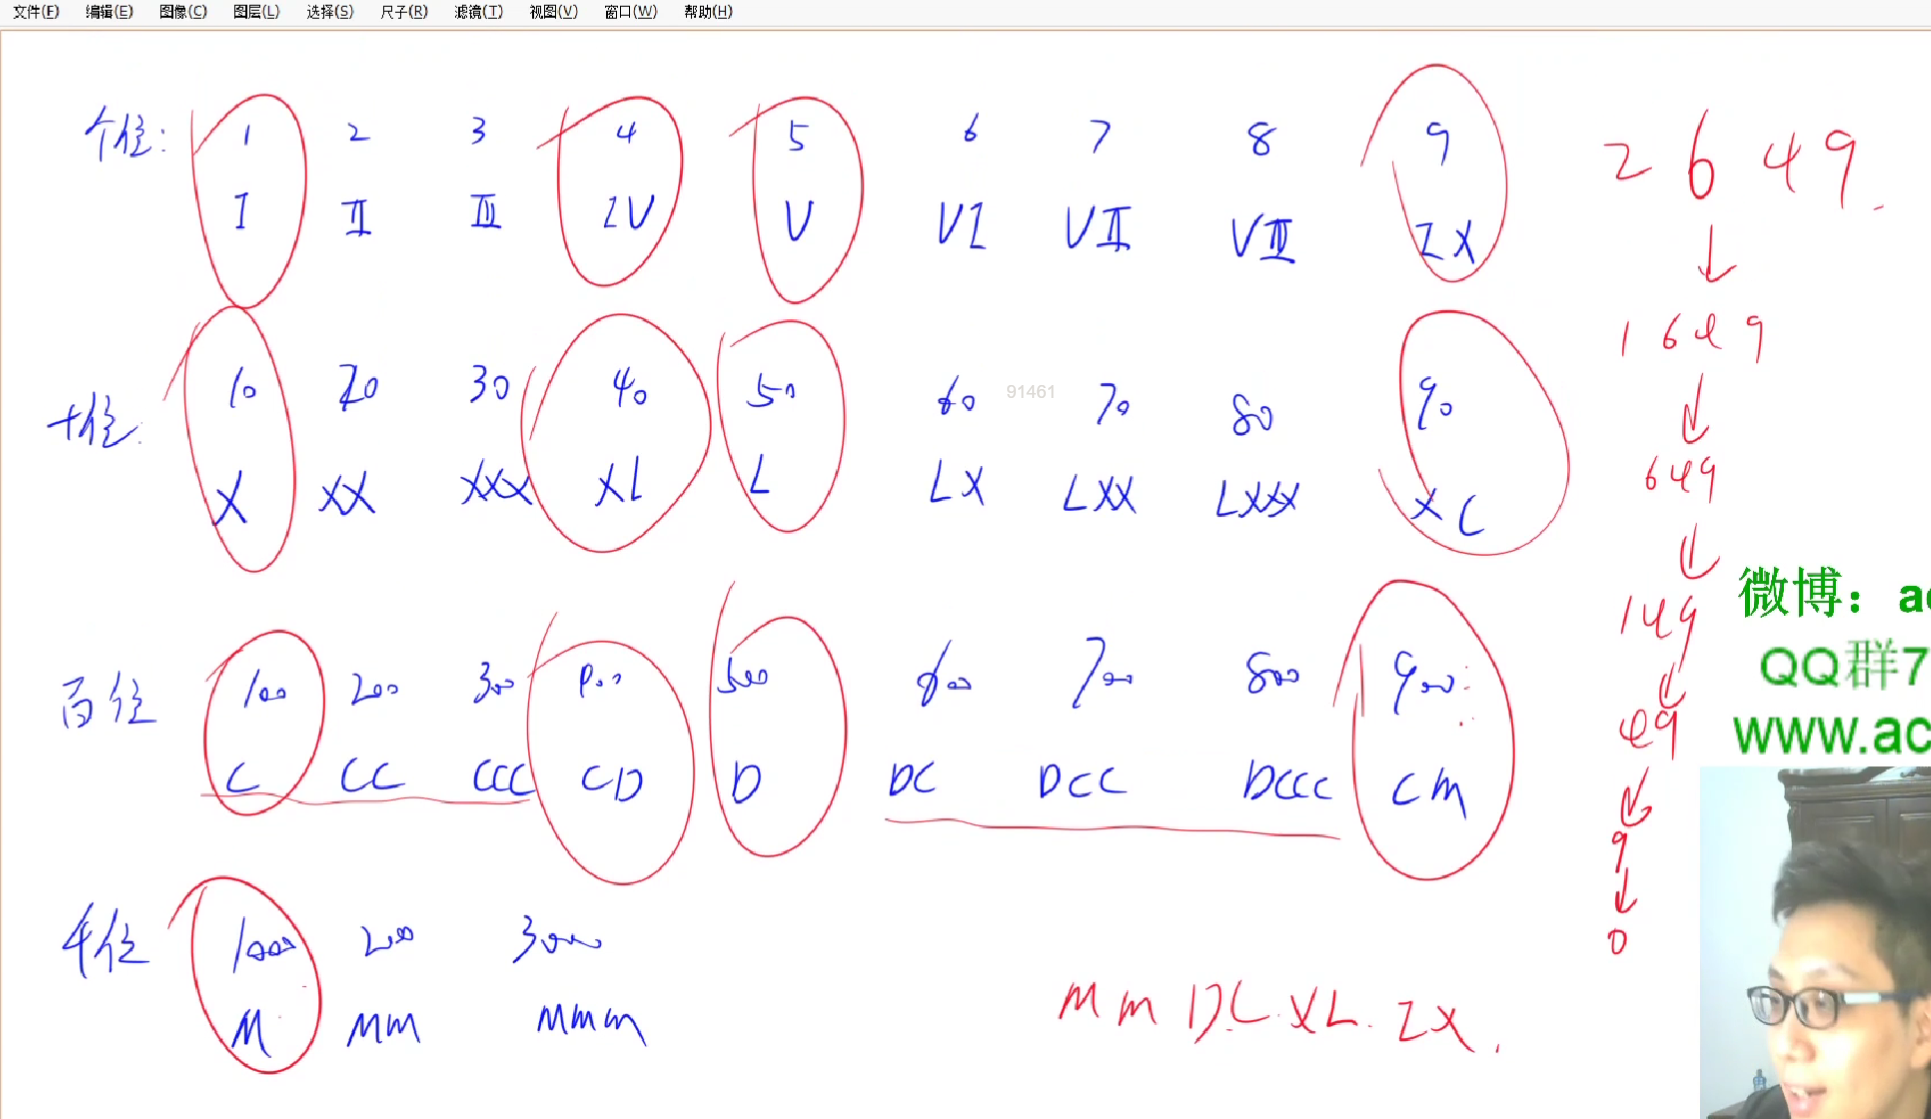 文件(F) 编辑(E) 图像(C) 图层(L) 选择(S) 尺子(R) 滤镜(T) 视图(V) 窗口(W) 帮助(H)
个位: 1 2 3 4 5 6 7 8 9
I II III IV V VI VII VIII IX
十位: 10 20 30 40 50 60 70 80 90
X XX XXX XL L LX LXX LXXX XC
百位 100 200 300 400 500 600 700 800 900
C CC CCC CD D DC DCC DCCC CM
千位 1000 200 3000
M MM MMM
MMDCXLIX.
2649.
↓
1649
↓
649
↓
149
↓
49
↓
9
↓
0
91461
微博：ac
QQ群7
www.ac